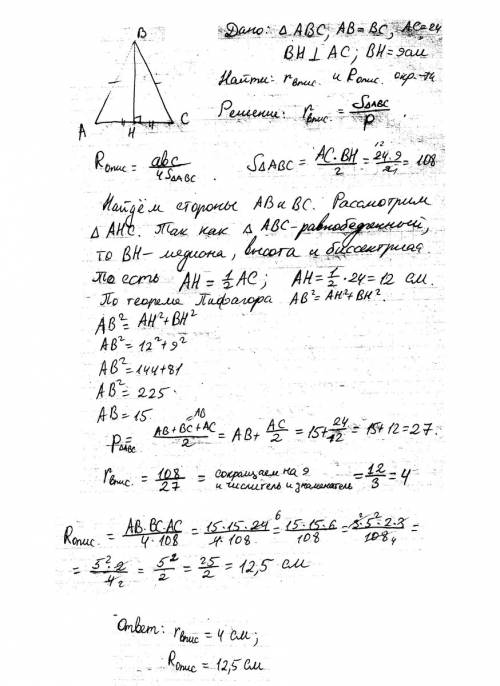 B
A
H
C
Дано: △ABC, AB=BC, AC=24
BH⊥AC; BH=9см
Найти: rвпис. и Rопис. окр-ти
Решение: rвпис. = S△ABC / p.
Rопис = abc / 4S△ABC. S△ABC = AC·BH / 2 = 24·9 / 2 = 108
Найдём стороны AB и BC. Рассмотрим
△AHC. Так как △ABC-равнобедренный,
то BH-медиана, высота и биссектриса.
То есть AH = 1/2 AC; AH = 1/2 · 24 = 12 см.
По теореме Пифагора AB² = AH² + BH².
AB² = AH² + BH²
AB² = 12² + 9²
AB² = 144 + 81
AB² = 225
AB = 15
p△ABC = AB + BC + AC / 2 = AB + AC / 2 = 15 + 24 / 2 = 15 + 12 = 27.
=AB
rвпис. = 108 / 27 = сокращаем на 9 и числитель и знаменатель = 12 / 3 = 4
Rопис. = AB·BC·AC / 4·108 = 15·15·24 / 4·108 = 15·15·6 / 108 = 3²·5²·2·3 / 108 =
= 5²·2 / 4 = 5² / 2 = 25 / 2 = 12,5 см
Ответ: rвпис = 4 см;
Rопис = 12,5 см